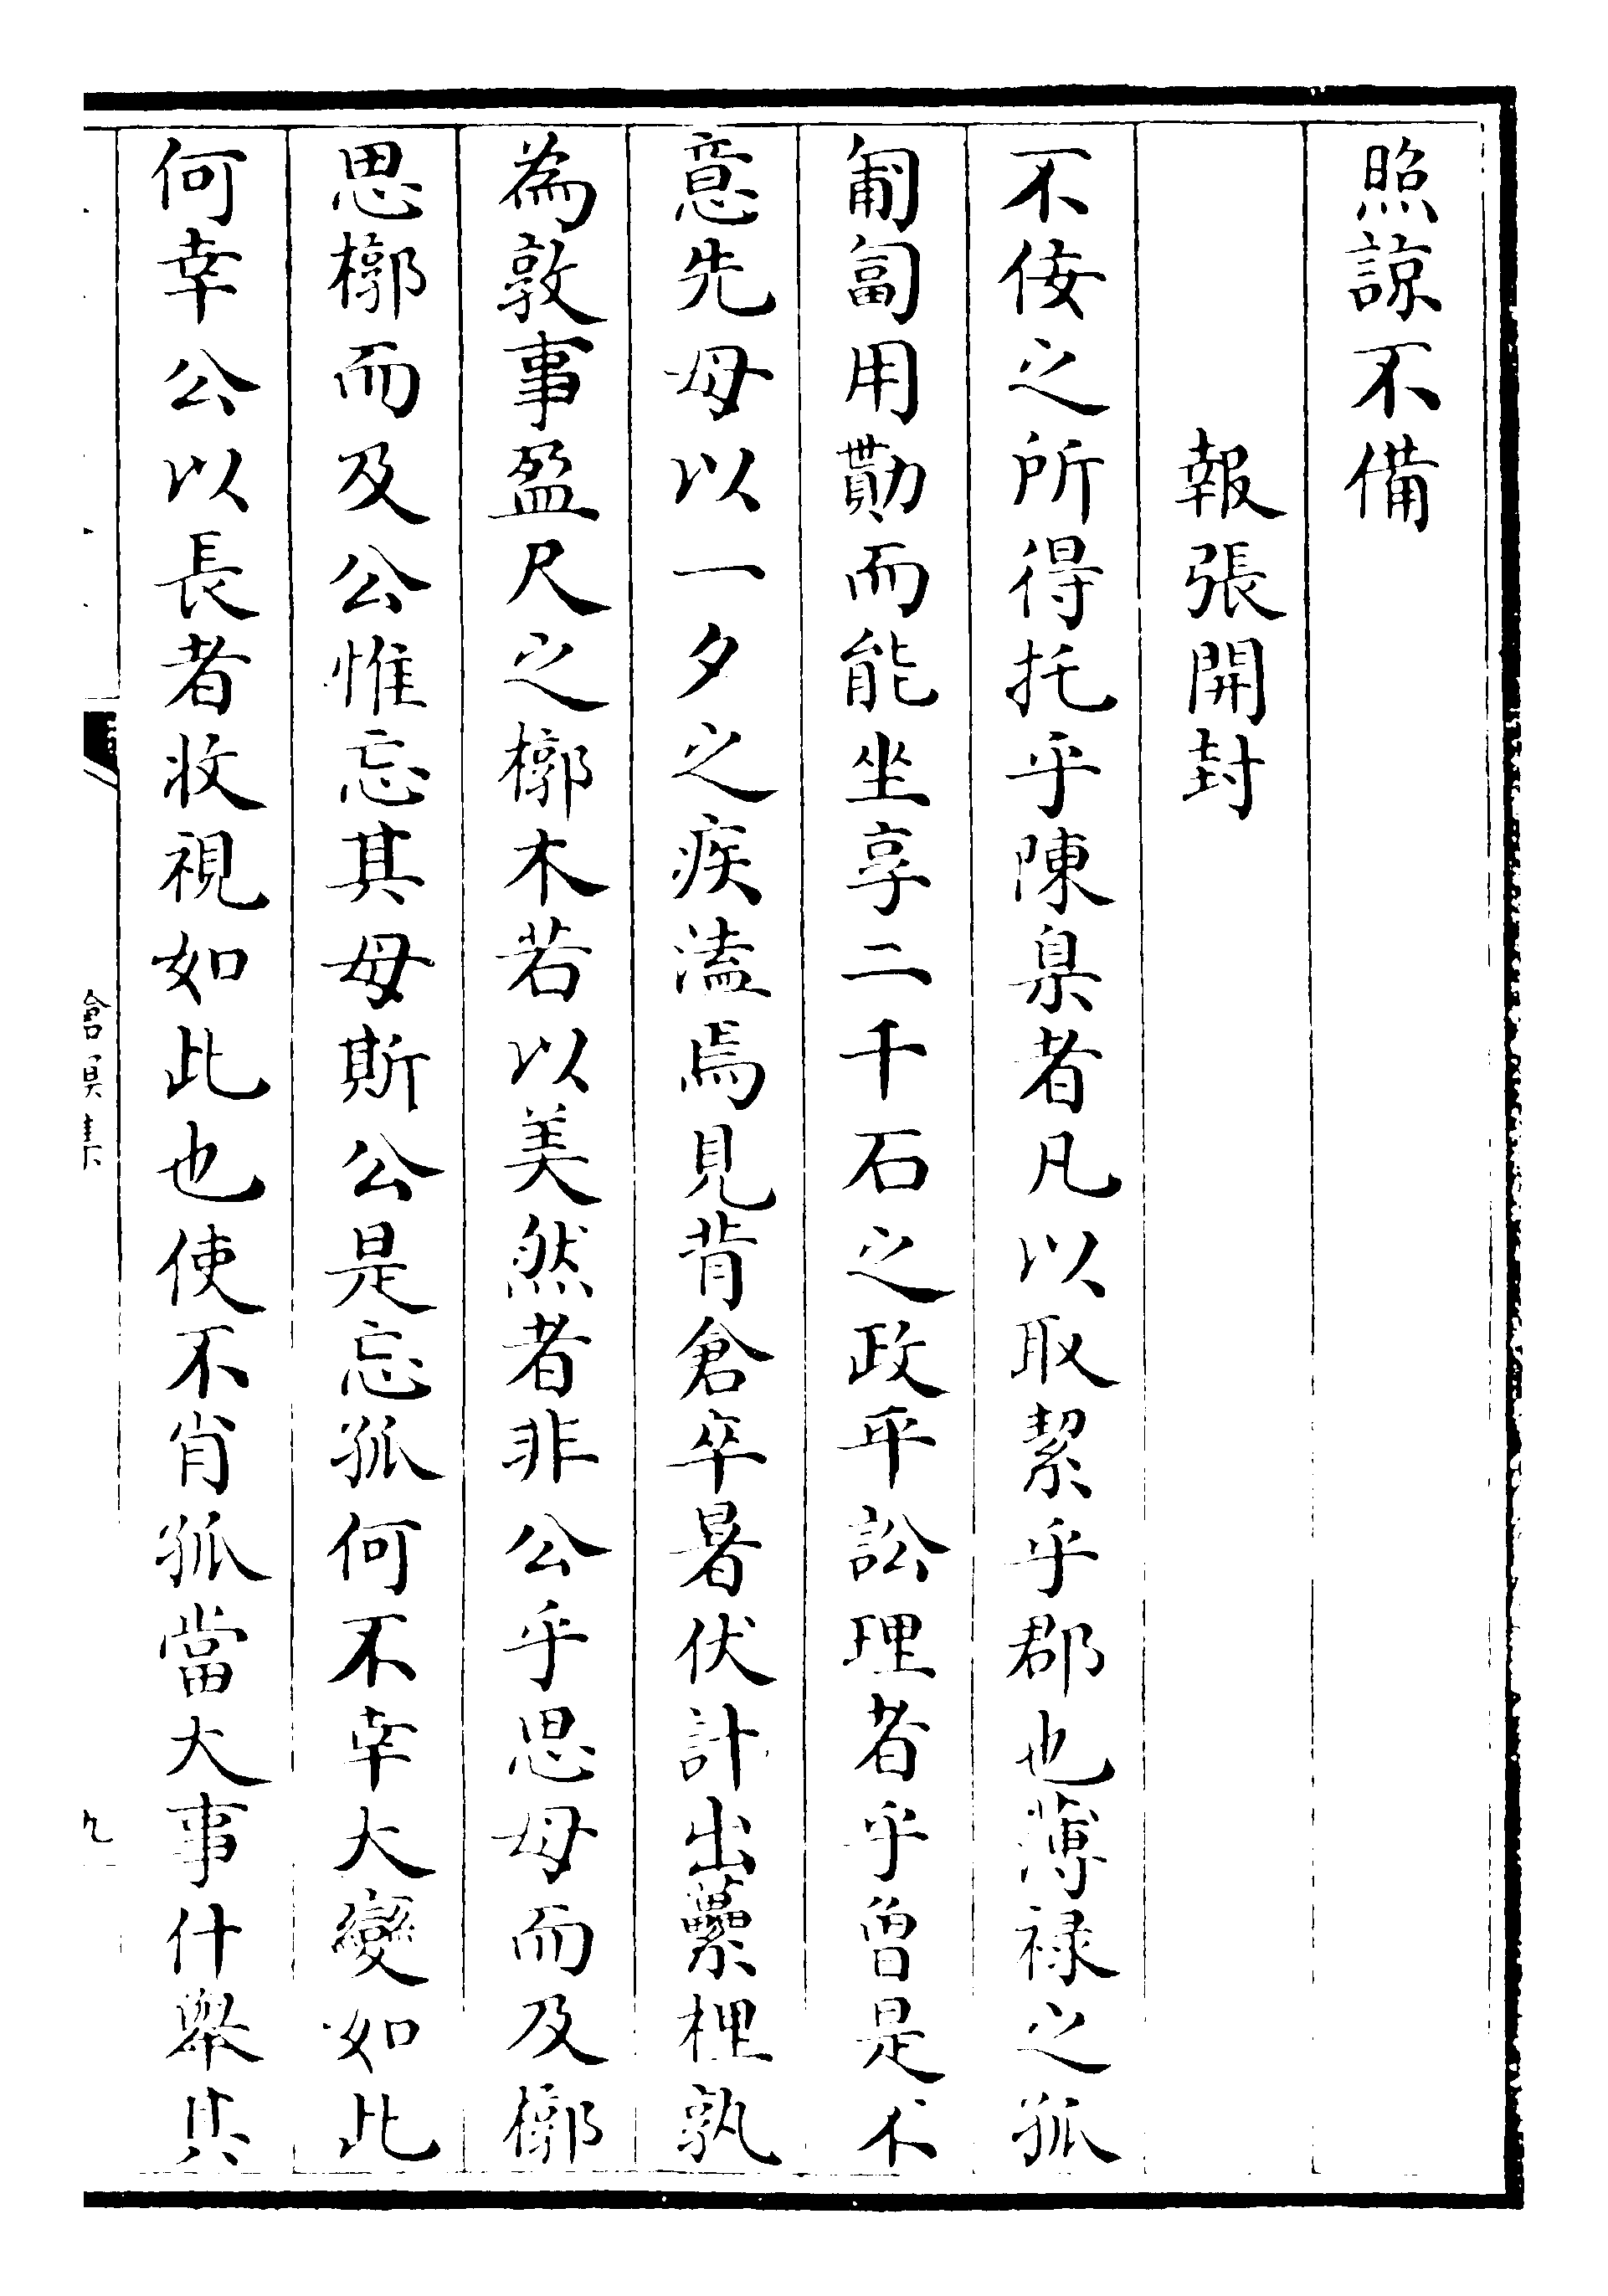 照諒不備
報張開封
不佞之所得托乎陳臬者凡以取絜乎郡也薄祿之孤
匍匐用勩而能坐享二千石之政平訟理者乎曾是不
意先母以一夕之疾溘焉見背倉卒暑伏計出虆梩孰
為敦事盈尺之槨木若以美然者非公乎思母而及槨
思槨而及公惟忘其母斯公是忘孤何不幸大變如此
何幸公以長者收視如此也使不肖孤當大事什舉其
滄溟集
九